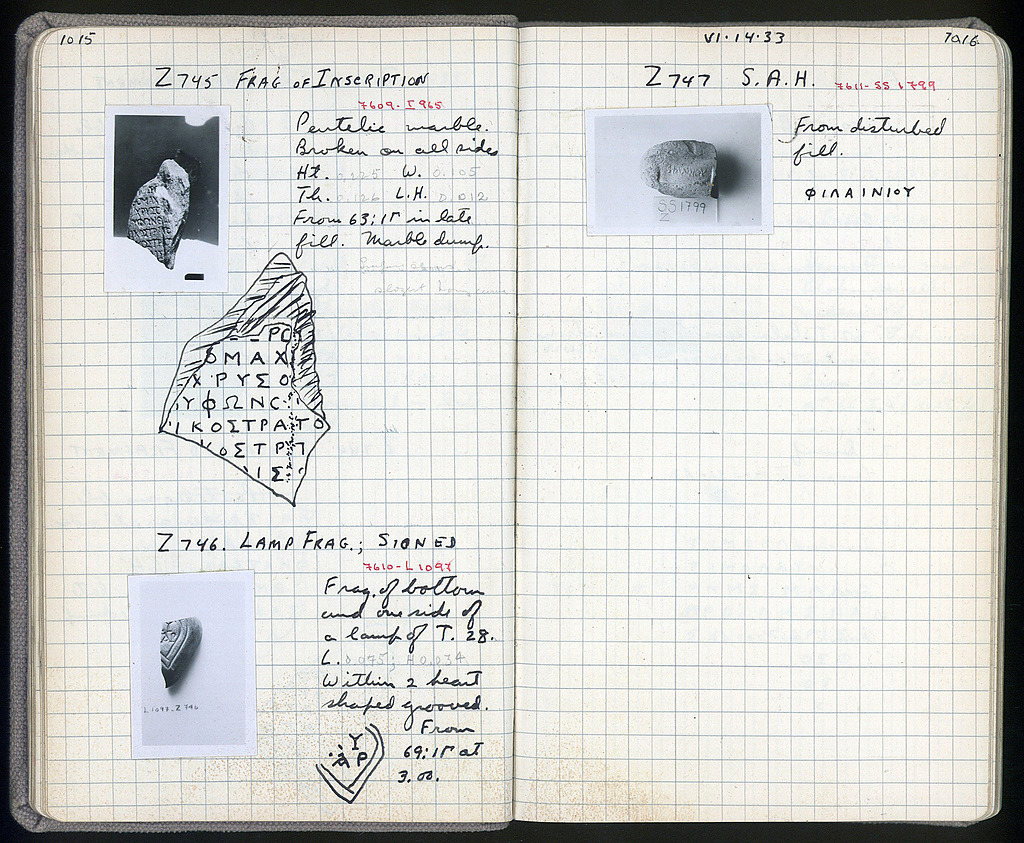 1015
Z 745 FRAG OF INSCRIPTION
7609 - I 965
Pentelic marble.
Broken on all sides
Ht. 0.125 W. 0.105
Th. 0.126 L.H. 0.012
From 63:ΙΓ in late
fill. Marble dump.
ΡΟ
ΟΜΑΧ
ΧΡΥΣΟ
ΥΦΩΝ
ΙΚΟΣΤΡΑΤΟ
ΟΣΤΡ
ΙΣ
Z 746. LAMP FRAG.; SIGNED
7610 - L 1097
Frag. of bottom
and one side of
a lamp of T. 28.
L. 0.075; H 0.034
L 1097 - Z 746
Within 2 heart
shaped grooved.
From
69:ΙΓ at
3.00.
Υ
Ρ
VI · 14 · 33
1016
Z 747 S.A.H.
7611 - SS 1799
From disturbed
fill.
ΦΙΛΑΙΝΙΟΥ
SS 1799
Z